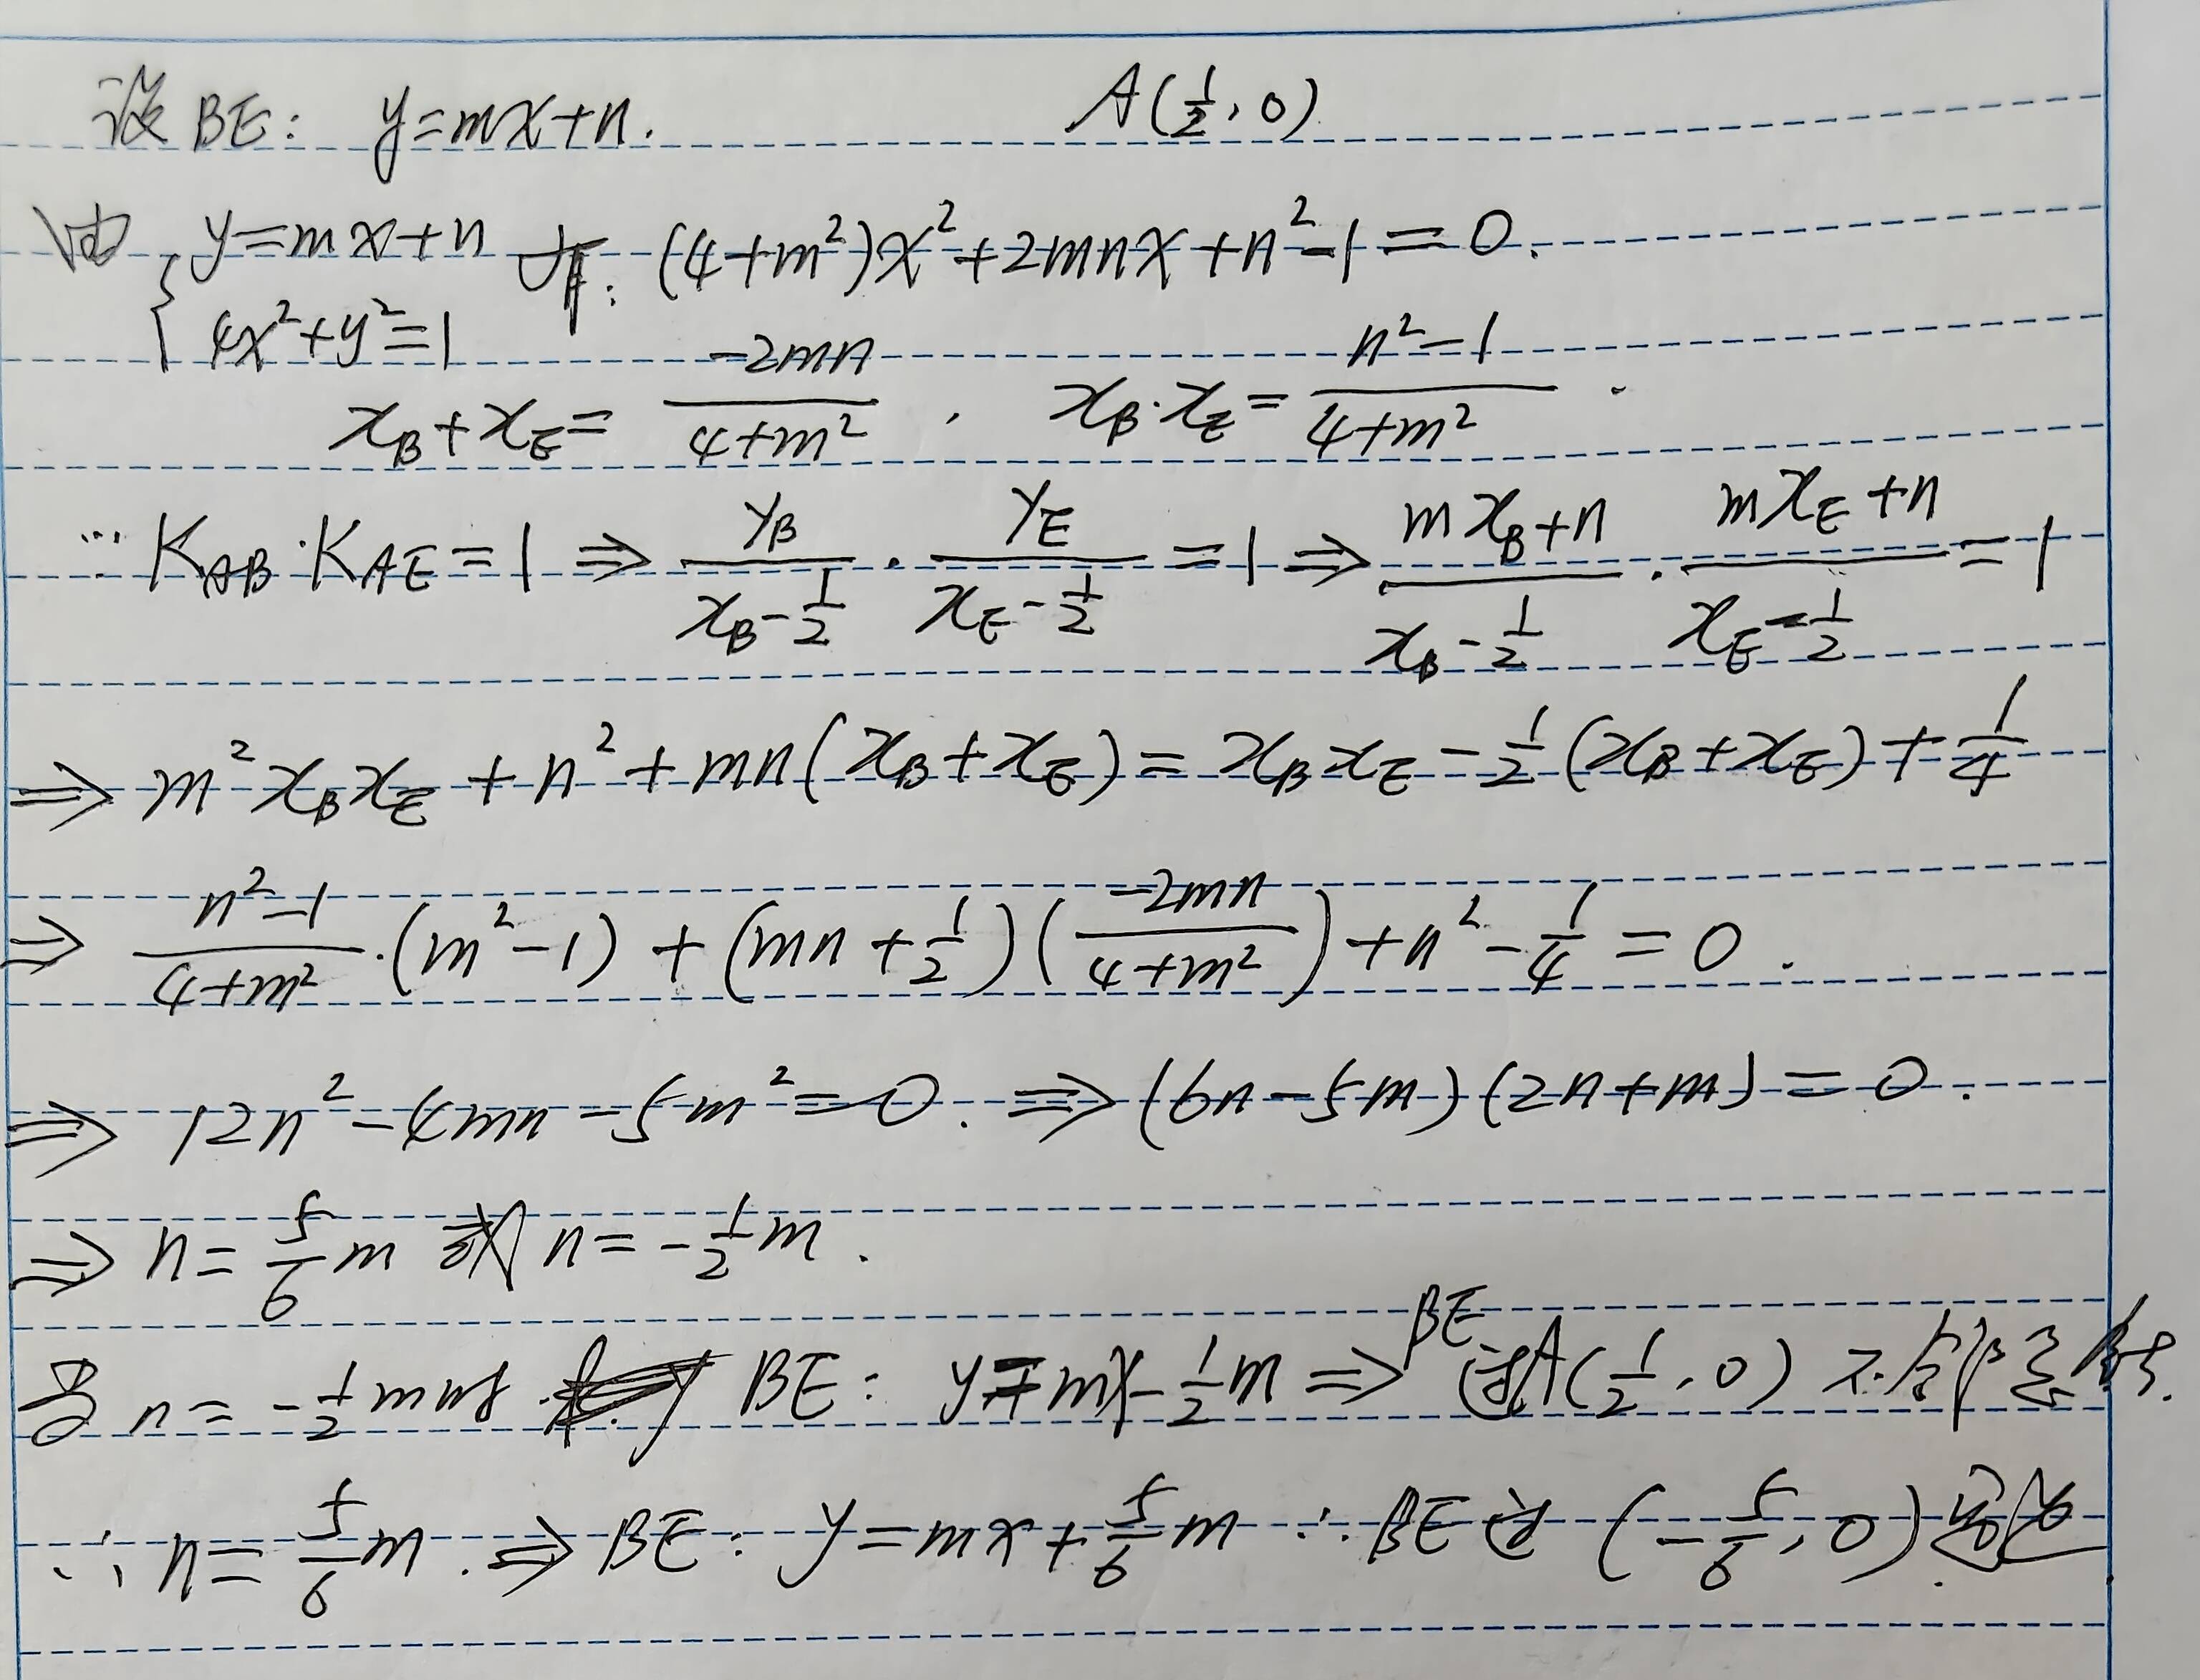 设BE: y=mx+n. A(1/2, 0)
由 {y=mx+n, 4x²+y²=1 有: (4+m²)x²+2mnx+n²-1=0.
x_B+x_E = -2mn/(4+m²), x_B·x_E = (n²-1)/(4+m²).
∵ K_AB·K_AE=1 ⇒ y_B/(x_B-1/2) · y_E/(x_E-1/2) = 1 ⇒ (mx_B+n)/(x_B-1/2) · (mx_E+n)/(x_E-1/2) = 1
⇒ m²x_Bx_E+n²+mn(x_B+x_E) = x_Bx_E-1/2(x_B+x_E)+1/4
⇒ (n²-1)/(4+m²)·(m²-1)+(mn+1/2)(-2mn/(4+m²))+n²-1/4=0.
⇒ 12n²-4mn-5m²=0. ⇒ (6n-5m)(2n+m)=0.
⇒ n=5/6m 或 n=-1/2m.
当 n=-1/2m时 BE: y=mx-1/2m ⇒ BE过A(1/2, 0) 不合题意
∴ n=5/6m. ⇒ BE: y=mx+5/6m ∴ BE过(-5/6, 0)